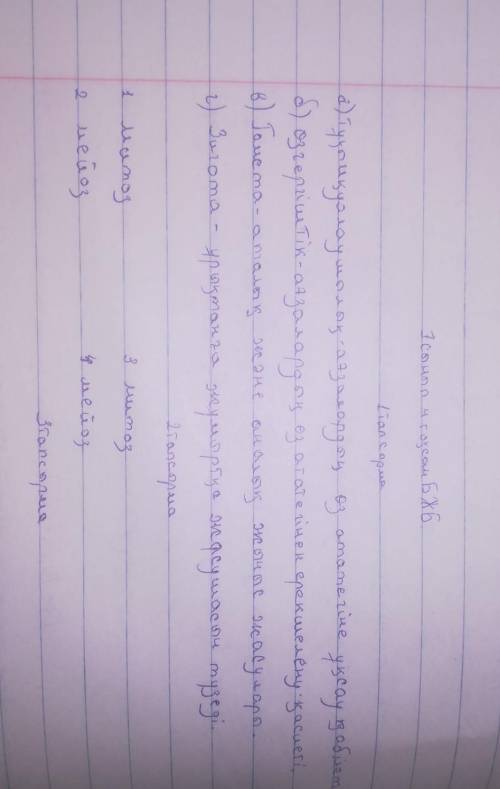 7 сынып 4 тоқсан БЖБ
1 тапсырма
а) Тұқымқуалаушылық - ағзалардың өз ататегіне ұқсау қабілет
б) Өзгергіштік - ағзалардың өз ататегінен ерекшелену қасиеті.
в) Гамета - аталық және аналық жыныс жасушары.
г) Зигота - ұрықтанға жұмыртқа жасушасын түзеді.
2 тапсырма
1 митоз 3 митоз
2 мейоз 4 мейоз
3 тапсырма